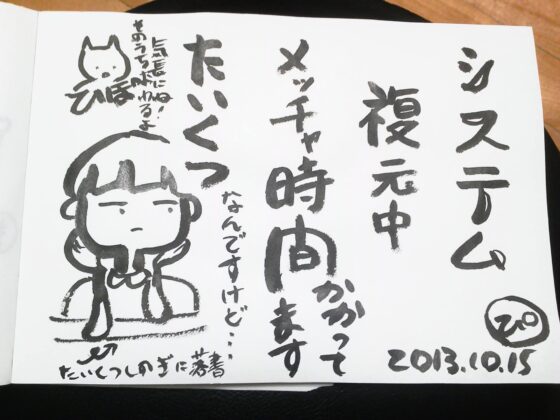 システム
復元中
メッチャ時間かかってます
たいくつ
なんですけど・・・
気長にね!
そのうち終わるよ
ひほ
たいくつしのぎに落書
ぴ
2013.10.15